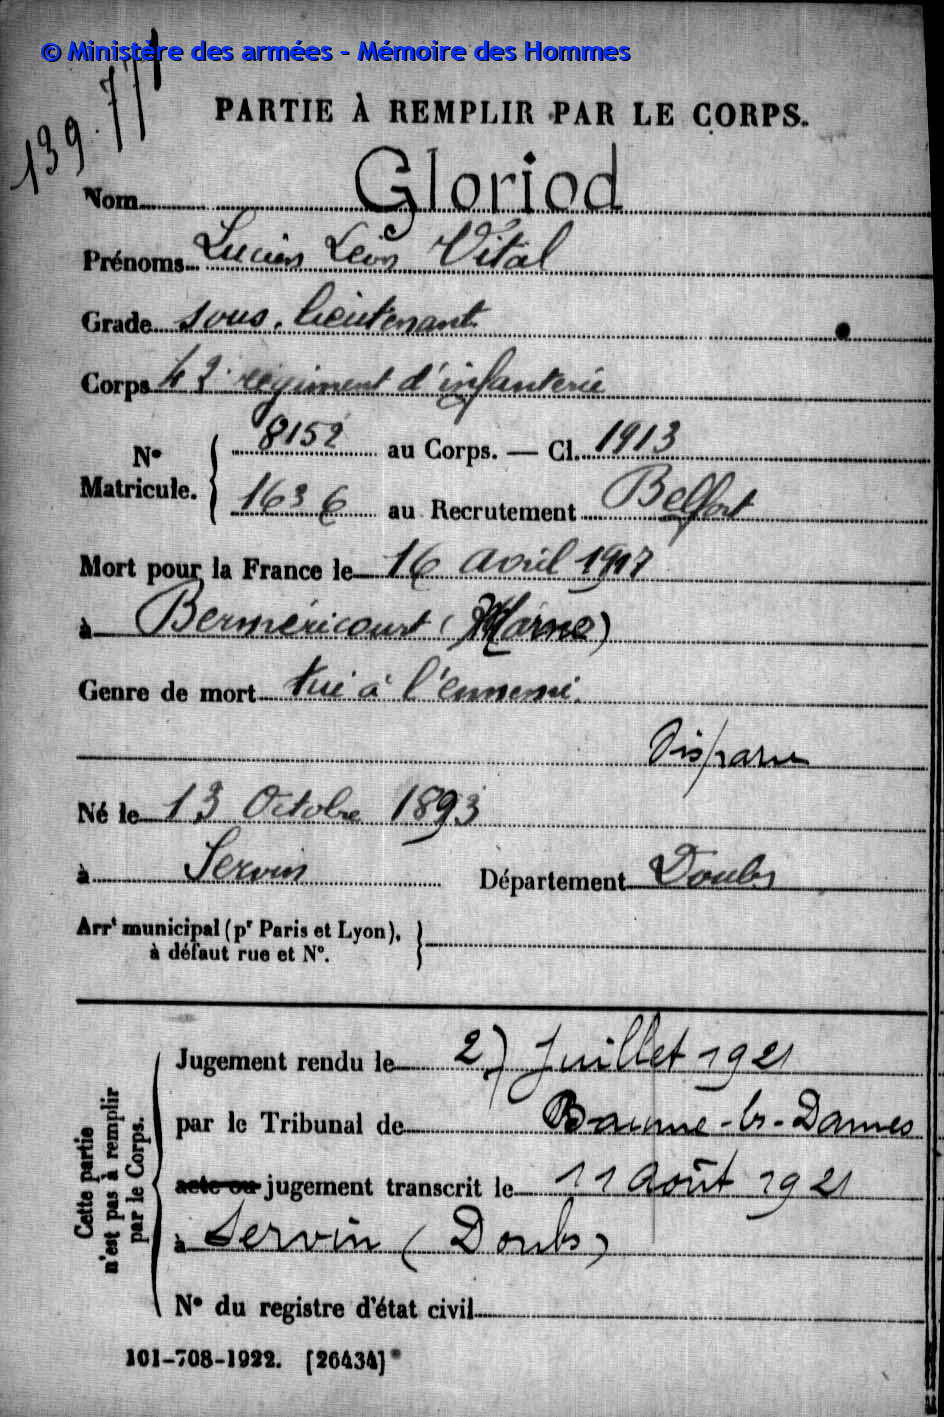 © Ministère des armées - Mémoire des Hommes
139.771
PARTIE À REMPLIR PAR LE CORPS.
Nom Gloriod
Prénoms Lucien Léon Vital
Grade sous-lieutenant
Corps 42e régiment d'infanterie
N° Matricule. { 8152 au Corps. — Cl. 1913
1636 au Recrutement Belfort
Mort pour la France le 16 avril 1917
à Berméricourt (Marne)
Genre de mort tué à l'ennemi.
Disparu
Né le 13 Octobre 1893
à Servin Département Doubs
Arrt municipal (pr Paris et Lyon), }
à défaut rue et N°.
Cette partie n'est pas à remplir par le Corps.
Jugement rendu le 27 Juillet 1921
par le Tribunal de Baume-les-Dames
acte ou jugement transcrit le 11 Août 1921
à Servin (Doubs)
N° du registre d'état civil
101-708-1922. [26434]